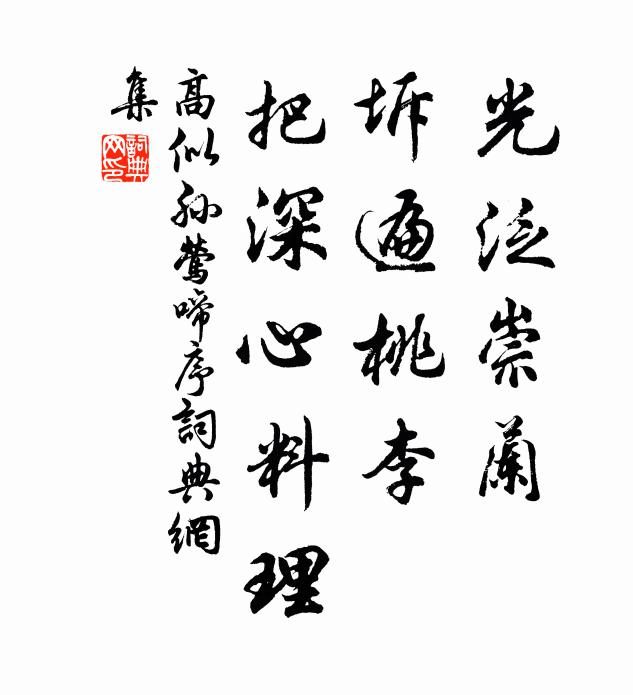 光泛崇蘭
坼遍桃李
把深心料理
高似孫鶯啼序詞典網
集
詞典網印